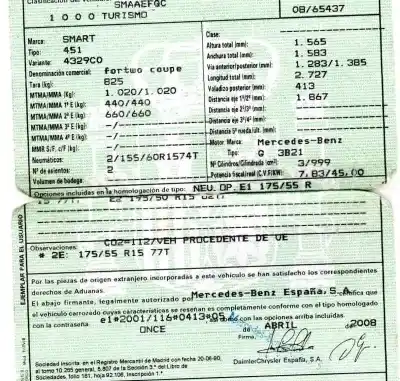 SMAAEFQC
1 0 0 0 TURISMO
08/65437
Marca: SMART
Tipo: 451
Variante: 4329C0
Denominación comercial: fortwo coupe
Tara (kg): 825
MTMA/MMA (Kg): 1.020/1.020
MTMA/MMA 1º E (kg): 440/440
MTMA/MMA 2º E (kg): 660/660
MTMA/MMA 3º E (kg): -/
MTMA/MMA 4º E (kg): -/
MMR S/F, c/F (kg): -/
Neumáticos: 2/155/60R1574T
Nº de asientos: 2
Volumen de bodega
Clase:
Altura total (mm): 1.565
Anchura total (mm): 1.583
Vía anterior/posterior (mm): 1.283/1.385
Longitud total (mm): 2.727
Voladizo posterior (mm): 413
Distancia eje 1º/2º (mm): 1.867
Distancia eje 2º/3º (mm):
Distancia eje 3º/4º (mm):
Distancia 5ª rueda/últ. (mm):
Motor: Marca: Mercedes-Benz
Tipo: Q 3B21
Nº Cilindros/Cilindrada (cm3): 3/999
Potencia fiscal/real (C.V.F/KW): 7,83/45,00
Opciones incluidas en la homologación de tipo: NEU. OP. E1 175/55 R
15 77T. E2 195/50 R15 82T
CO2=112/VEH PROCEDENTE DE UE
Observaciones:
* 2E: 175/55 R15 77T
Por las piezas de origen extranjero incorporadas a este vehículo se han satisfecho los correspondientes
derechos de Aduanas.
El abajo firmante, legalmente autorizado por Mercedes-Benz España, S.A. certifica que
el vehículo carrozado cuyas características se reseñan es completamente conforme con el tipo homologado
con la contraseña e1*2001/116*0413*05 con las opciones arriba incluidas.
ONCE ABRIL 2008
Firma:
DaimlerChrysler España, S.A.
Sociedad inscrita en el Registro Mercantil de Madrid con fecha 20-06-80,
al tomo 10.265 general, 8.807 de la Sección 3.ª del Libro de
Sociedades, folio 161, hoja 92.106, Inscripción 1.ª
EJEMPLAR PARA EL USUARIO